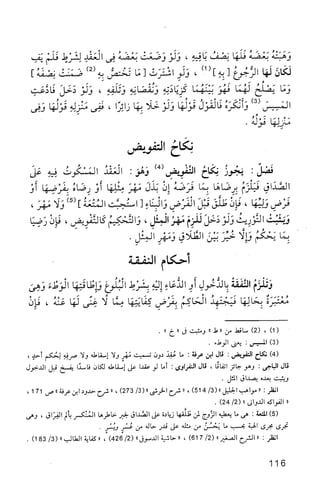 وَهَبَتْهُ بَعْضَهُ فَلَهَا نِصْفُ بَاقِيهِ ، وَلَوْ وَضَعَتْ بَعْضَهُ فِي الْعَقْدِ لِشَرْطٍ فَلَمْ يَفِ
لَكَانَ لَهَا الرُّجُوعُ [ بِهِ ] (1) ، وَلَوِ اشْتَرَتْ [ مَا تَخْتَصُّ بِهِ (2) ضَمِنَتْ نِصْفَهُ ]
وَمَا يَصْلُحُ لَهُمَا فَهُوَ بَيْنَهُمَا كَزِيَادَتِهِ وَنُقْصَانِهِ وَتَلَفِهِ ، وَلَوْ دَخَلَ فَادَّعَتِ
الْمَسِيسَ (3) وَأَنْكَرَهُ فَالْقَوْلُ قَوْلُهَا وَلَوْ خَلَا بِهَا زَائِرًا ، فَفِي مَنْزِلِهِ قَوْلُهَا وَفِي
مَنْزِلِهَا قَوْلُهُ .
نِكَاحُ التفويض
فَصْلٌ : يَجُوزُ نِكَاحُ التَّفْوِيضِ (4) وَهُوَ : الْعَقْدُ الْمَسْكُوتُ فِيهِ عَلَى
الصَّدَاقِ فَيَلْزَمُ بِرِضَاهَا بِمَا فَرَضَهُ إِنْ بَذَلَ مَهْرَ مِثْلِهَا أَوْ رِضَاهُ بِفَرْضِهَا أَوْ
فَرْضِ وَلِيِّهَا ، فَإِنْ طَلَّقَ قَبْلَ الْفَرْضِ وَالْبِنَاءِ [ اسْتُحِبَّتِ الْمُتْعَةُ ] (5) وَلَا مَهْرَ ،
وَيَثْبُتُ التَّوْرِيثُ وَلَوْ دَخَلَ فَلَزِمَ مَهْرُ الْمِثْلِ ، وَالتَّحْكِيمُ كَالتَّفْوِيضِ ، فَإِنْ رَضِيَا
بِمَا يَحْكُمُ وَإِلَّا خُيِّرَ بَيْنَ الطَّلَاقِ وَمَهْرِ الْمِثْلِ .
أحكام النفقة
وَتَلْزَمُ النَّفَقَةُ بِالدُّخُولِ أَوِ الدُّعَاءِ إِلَيْهِ بِشَرْطِ الْبُلُوغِ وَإِطَاقَتِهَا الْوَطْءَ وَهِيَ
مُعْتَبَرَةٌ بِحَالِهَا فَيَجْتَهِدُ الْحَاكِمُ بِفَرْضِ كِفَايَتِهَا مِمَّا لَا غِنَى لَهَا عَنْهُ ، فَإِنْ
(1) ، (2) ساقط من « ط » ومثبت في « خ » .
(3) المسيس : يعني الوطء .
(4) نكاح التفويض : قال ابن عرفة : ما عُقِدَ دون تسمية مَهْرٍ ولا إسقاطه ولا صرفه لِحُكم أحدٍ ،
قال الباجي : وهو جائز اتفاقًا ، قال النفراوي : أما لو عقدا على إسقاطه لكان فاسدًا يفسخ قبل الدخول
ويثبت بعده بصداق المثل .
انظر : « مواهب الجليل » (3/ 514) ، « شرح الخرشي » (3/ 273) ، « شرح حدود ابن عرفة » ص 171 ،
« الفواكه الدواني » (2/ 24) .
(5) المتعة : هي ما يعطيه الزوج لمن طلقها زيادة على الصَّداق لجبر خاطرها المُنكسر بألم الفِرَاق ، وهي
تجري مجرى الهبة بحسب ما يَحْسُنُ من مثله على قدر حاله من عُسْرٍ ويُسْرٍ .
انظر : « الشرح الصغير » (2/ 617) ، « حاشية الدسوقي » (2/ 426) ، « كفاية الطالب » (3/ 183) .
116